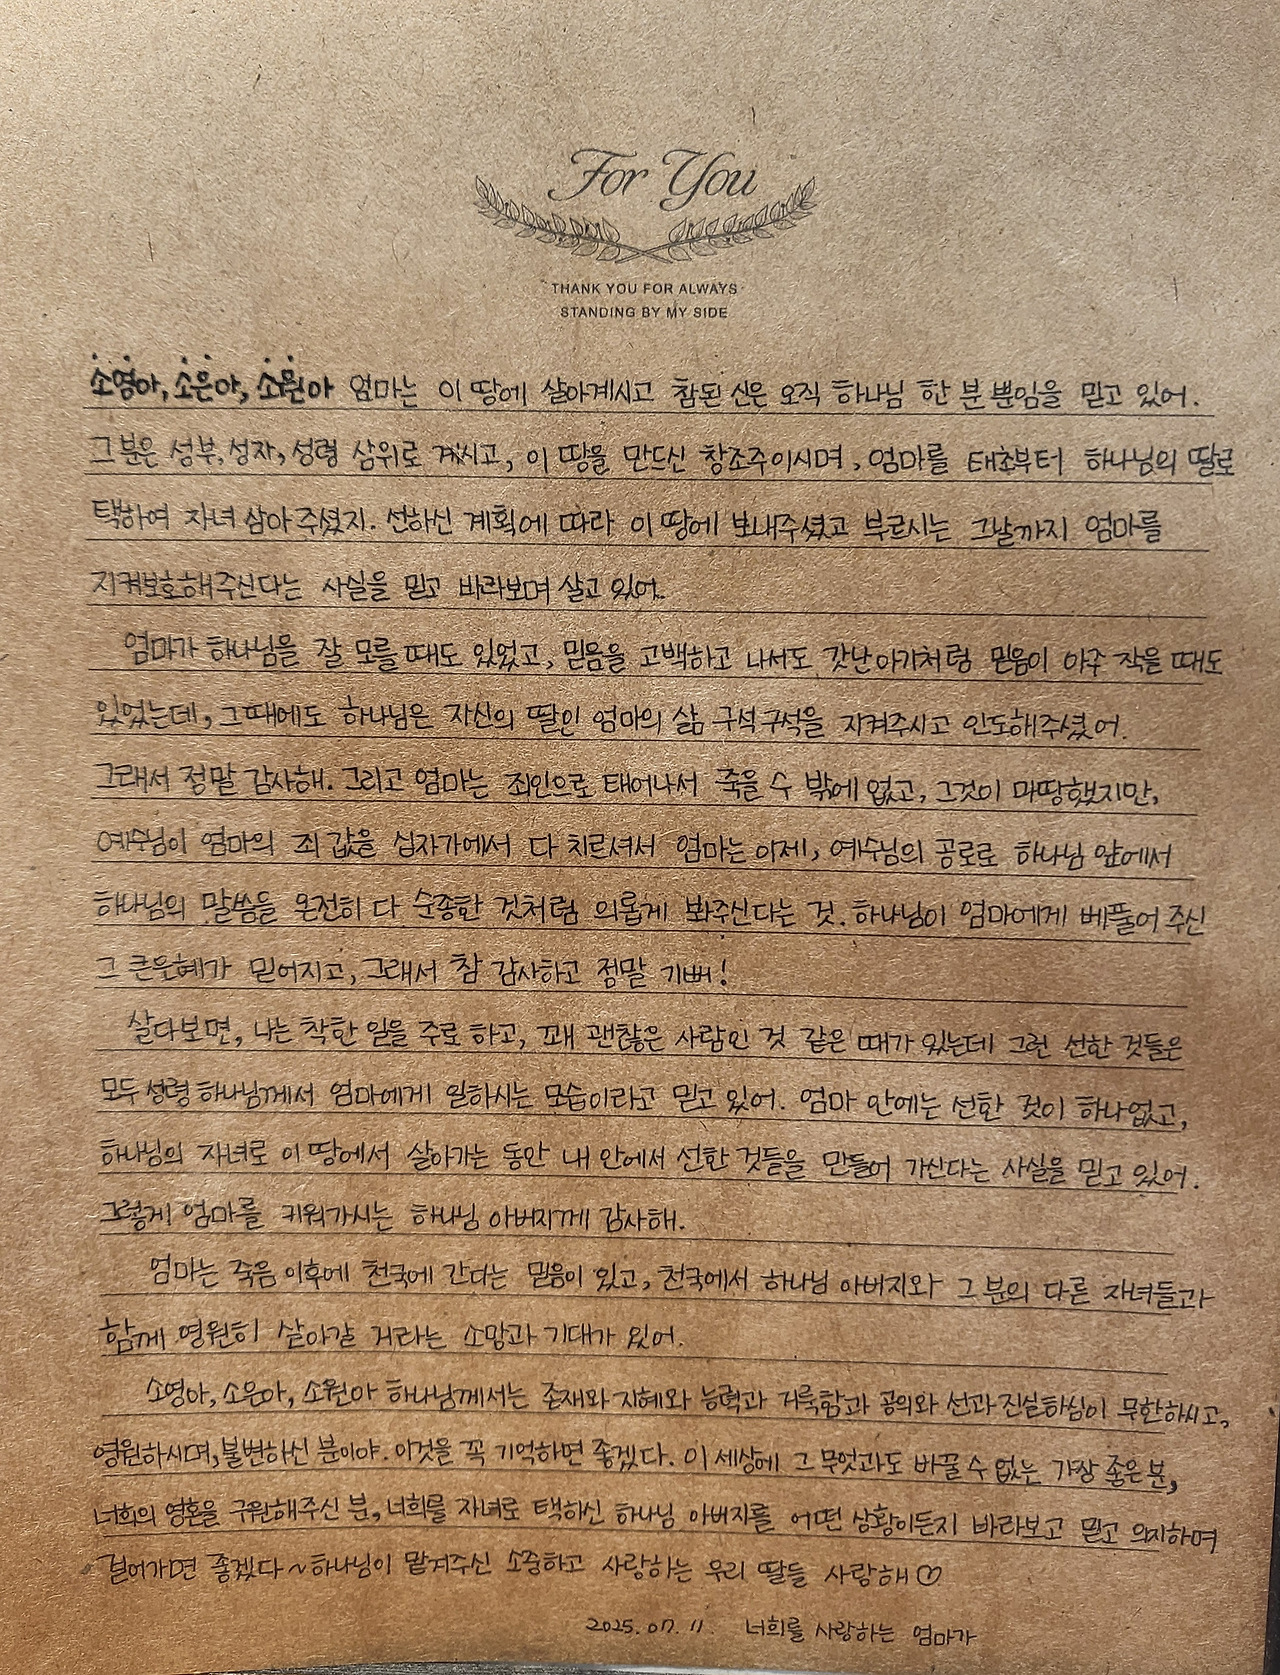 For You
THANK YOU FOR ALWAYS
STANDING BY MY SIDE
소영아, 소은아, 소원아 엄마는 이 땅에 살아계시고 참된 신은 오직 하나님 한 분 뿐임을 믿고 있어.
그분은 성부, 성자, 성령 삼위로 계시고, 이 땅을 만드신 창조주이시며, 엄마를 태초부터 하나님의 딸로
택하여 자녀 삼아 주셨지. 선하신 계획에 따라 이 땅에 보내주셨고 부르시는 그날까지 엄마를
지켜보호해주신다는 사실을 믿고 바라보며 살고 있어.
엄마가 하나님을 잘 모를 때도 있었고, 믿음을 고백하고 나서도 갓난아기처럼 믿음이 아주 작을 때도
있었는데, 그때에도 하나님은 자신의 딸인 엄마의 삶 구석구석을 지켜주시고 인도해주셨어.
그래서 정말 감사해. 그리고 엄마는 죄인으로 태어나서 죽을 수 밖에 없고, 그것이 마땅했지만,
예수님이 엄마의 죄 값을 십자가에서 다 치르셔서 엄마는 이제, 예수님의 공로로 하나님 앞에서
하나님의 말씀을 온전히 다 순종한 것처럼 의롭게 봐주신다는 것. 하나님이 엄마에게 베풀어 주신
그 큰은혜가 믿어지고, 그래서 참 감사하고 정말 기뻐!
살다보면, 나는 착한 일을 주로 하고, 꽤 괜찮은 사람인 것 같은 때가 있는데 그런 선한 것들은
모두 성령 하나님께서 엄마에게 일하시는 모습이라고 믿고 있어. 엄마 안에는 선한 것이 하나없고,
하나님의 자녀로 이 땅에서 살아가는 동안 내 안에서 선한 것들을 만들어 가신다는 사실을 믿고 있어.
그렇게 엄마를 키워가시는 하나님 아버지께 감사해.
엄마는 죽음 이후에 천국에 간다는 믿음이 있고, 천국에서 하나님 아버지와 그 분의 다른 자녀들과
함께 영원히 살아갈 거라는 소망과 기대가 있어.
소영아, 소은아, 소원아 하나님께서는 존재와 지혜와 능력과 거룩함과 공의와 선과 진실하심이 무한하시고,
영원하시며, 불변하신 분이야. 이것을 꼭 기억하면 좋겠다. 이 세상에 그 무엇과도 바꿀 수 없는 가장 좋은 분,
너희의 영혼을 구원해주신 분, 너희를 자녀로 택하신 하나님 아버지를 어떤 상황이든지 바라보고 믿고 의지하며
걸어가면 좋겠다~ 하나님이 맡겨주신 소중하고 사랑하는 우리 딸들 사랑해♡
2025. 07. 11. 너희를 사랑하는 엄마가